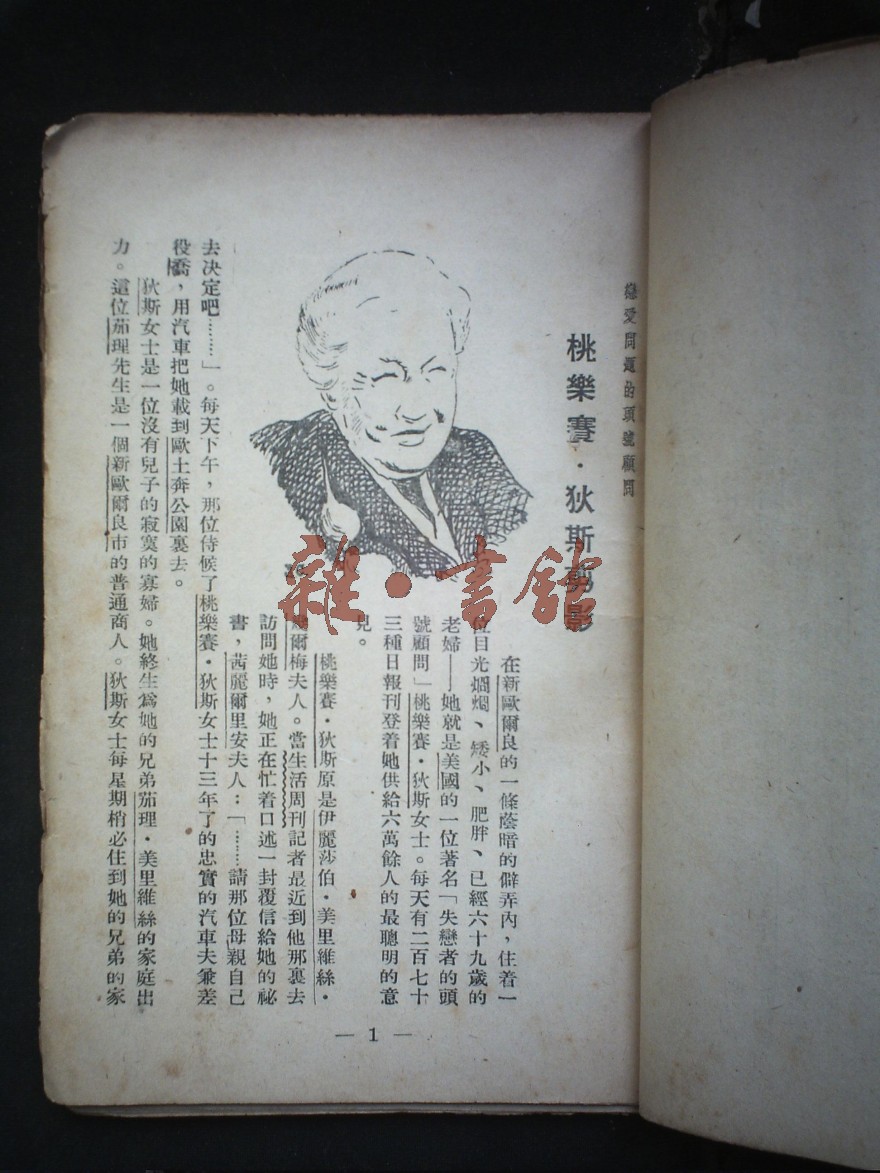 戀愛問題的頭號顧問
桃樂賽・狄斯剪影
在新歐爾良的一條蔭暗的僻弄內，住着一
位目光烱烱、矮小、肥胖、已經六十九歲的
老婦——她就是美國的一位著名「失戀者的頭
號顧問」桃樂賽・狄斯女士。每天有二百七十
三種日報刊登着她供給六萬餘人的最聰明的意
見。
桃樂賽・狄斯原是伊麗莎伯・美里維絲・
爾梅夫人。當生活周刊記者最近到他那裏去
訪問她時，她正在忙着口述一封覆信給她的祕
書，茜麗爾里安夫人：「……請那位母親自己
去決定吧……」。每天下午，那位侍候了桃樂賽・狄斯女士十三年了的忠實的汽車夫兼差
役喬，用汽車把她載到歐土奔公園裏去。
狄斯女士是一位沒有兒子的寂寞的寡婦。她終生爲她的兄弟茄理・美里維絲的家庭出
力。這位茄理先生是一個新歐爾良市的普通商人。狄斯女士每星期梢必住到她的兄弟的家
— 1 —
雜・書館